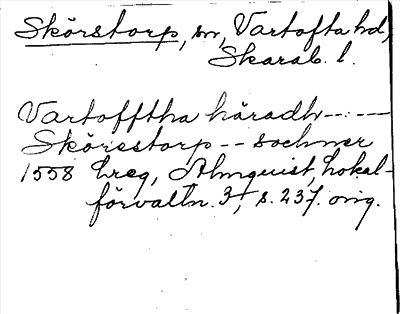 Skörstorp, sn, Vartofta hd,
Skarab. l.
Vartofftha häradh -- : --
Skörestorp -- sochner
1558 Lreg, Almquist, Lokal-
förvaltn. 3, s. 237. orig.